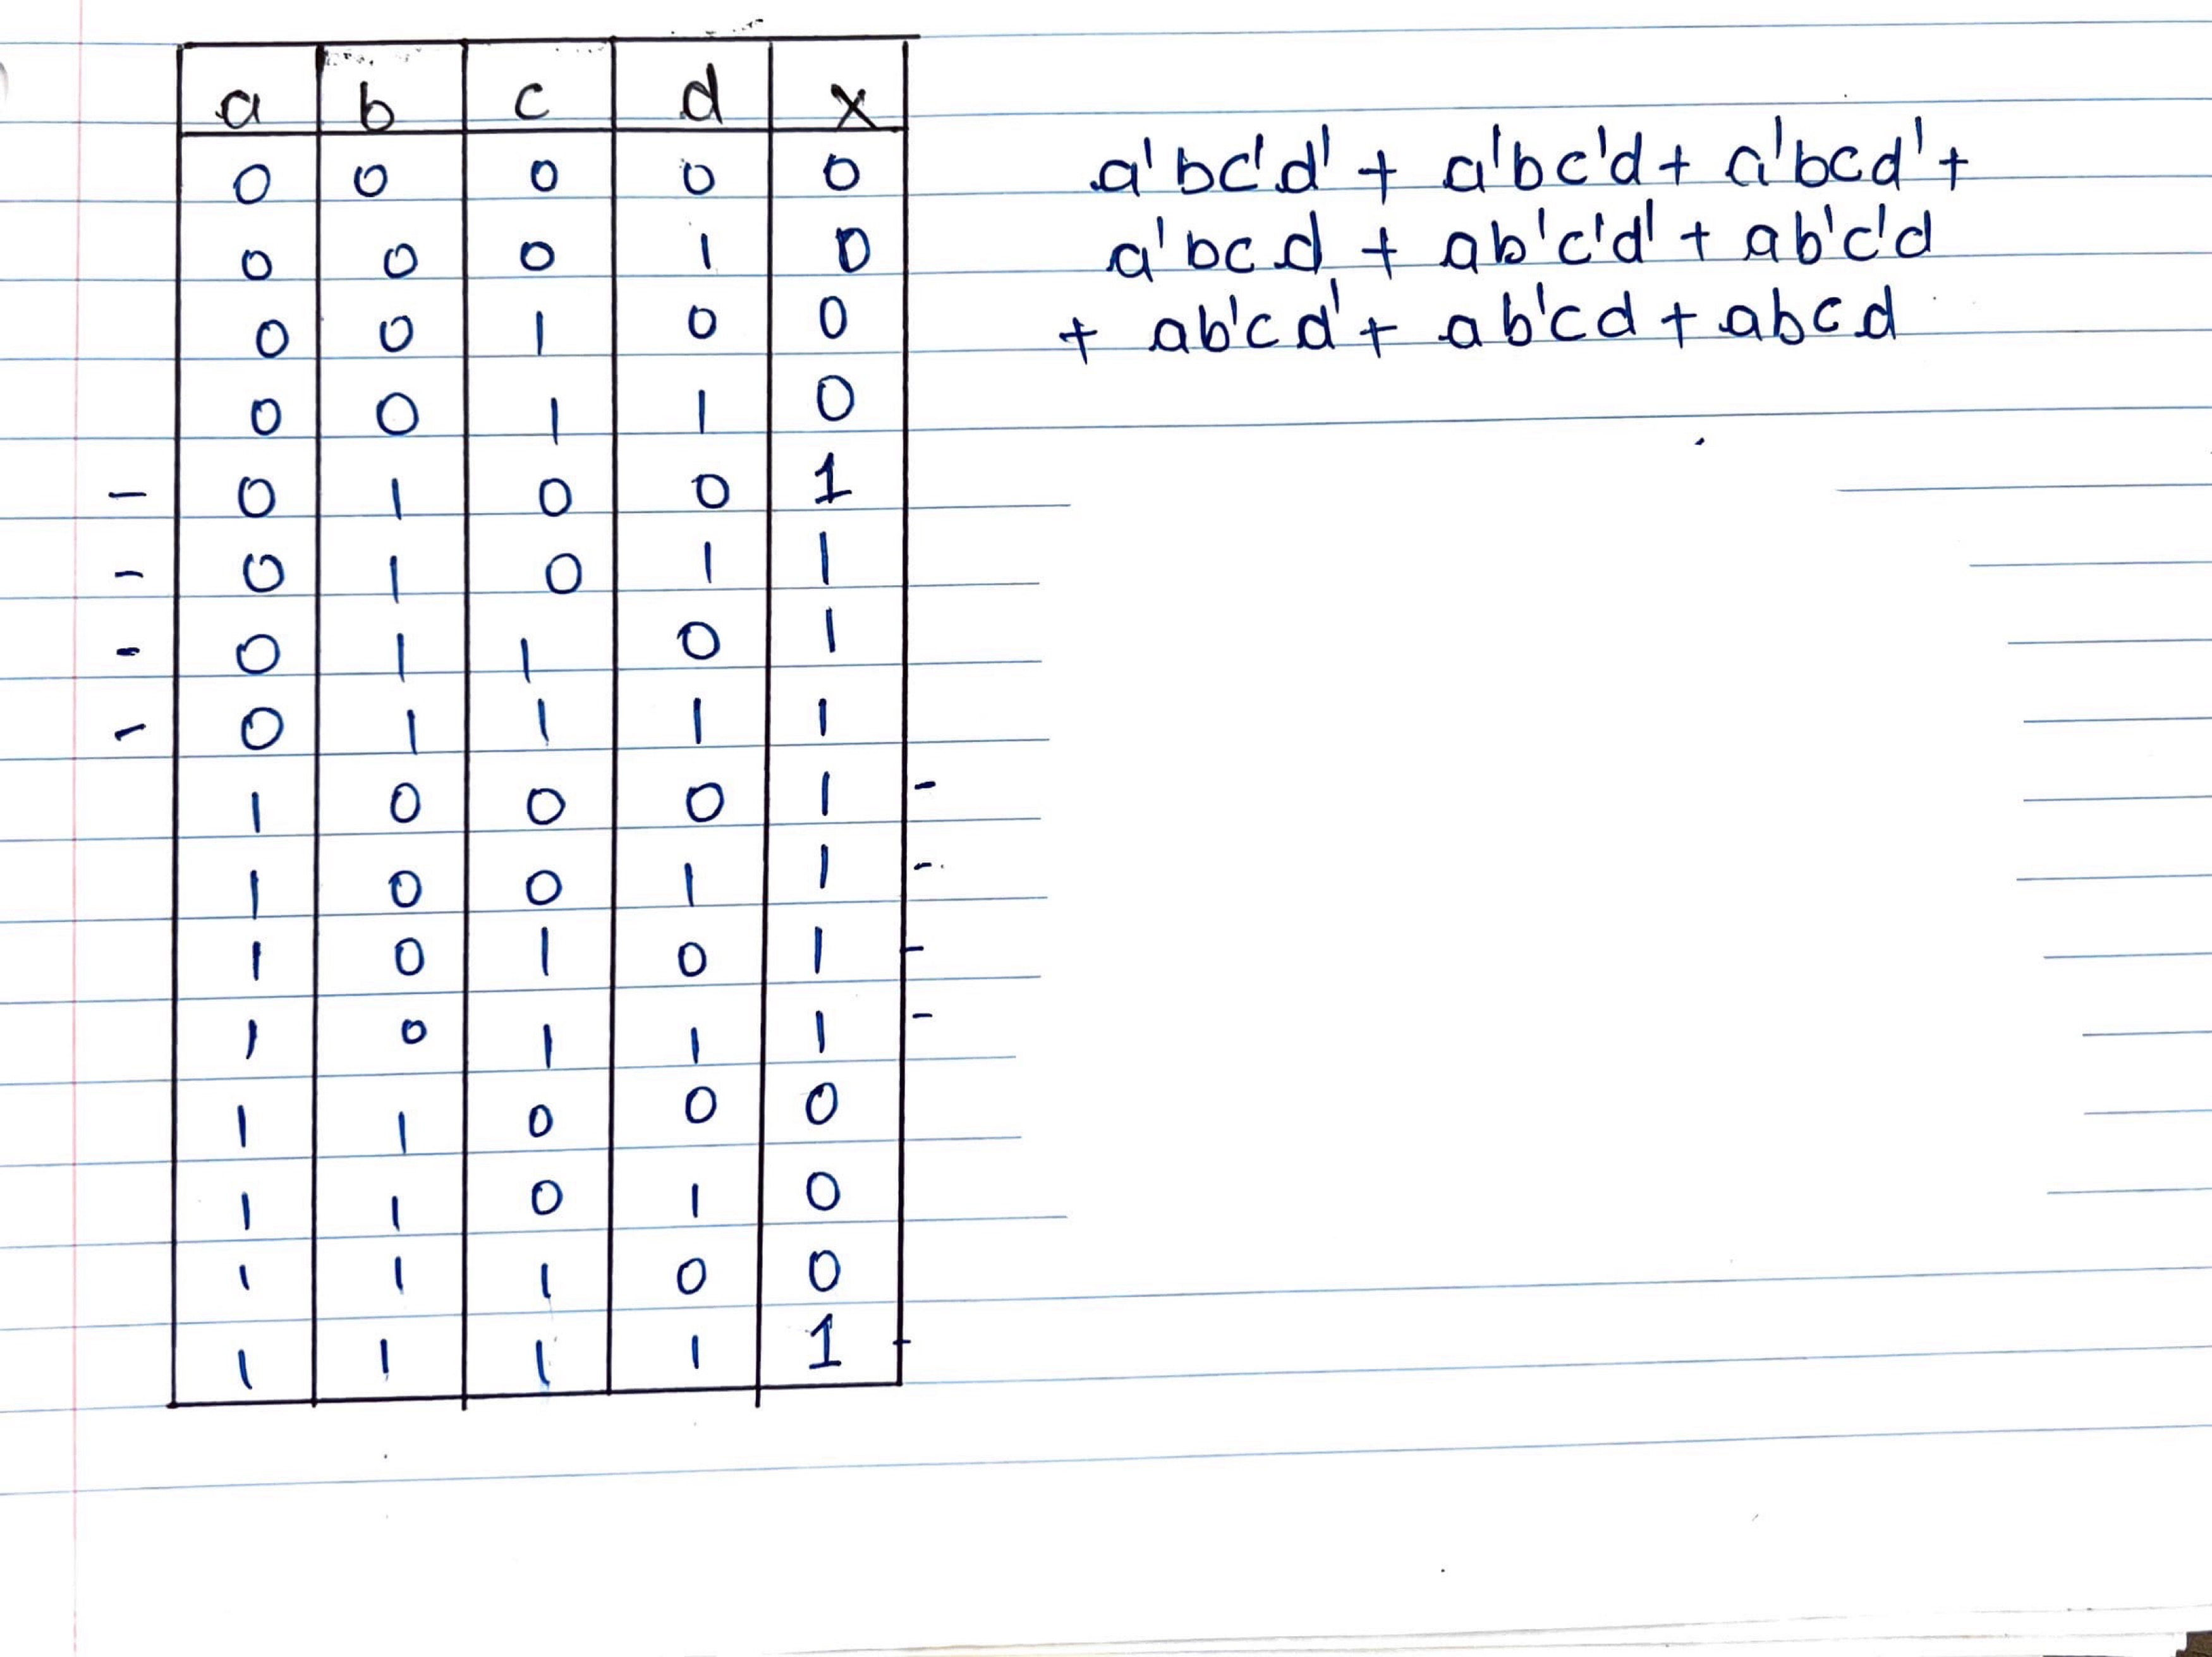 a b c d x
0 0 0 0 0
0 0 0 1 0
0 0 1 0 0
0 0 1 1 0
- 0 1 0 0 1
- 0 1 0 1 1
- 0 1 1 0 1
- 0 1 1 1 1
1 0 0 0 1 -
1 0 0 1 1 -
1 0 1 0 1 -
1 0 1 1 1 -
1 1 0 0 0
1 1 0 1 0
1 1 1 0 0
1 1 1 1 1 -
a'bc'd' + a'bc'd + a'bcd' +
a'bcd + ab'c'd' + ab'c'd
+ ab'cd' + ab'cd + abcd